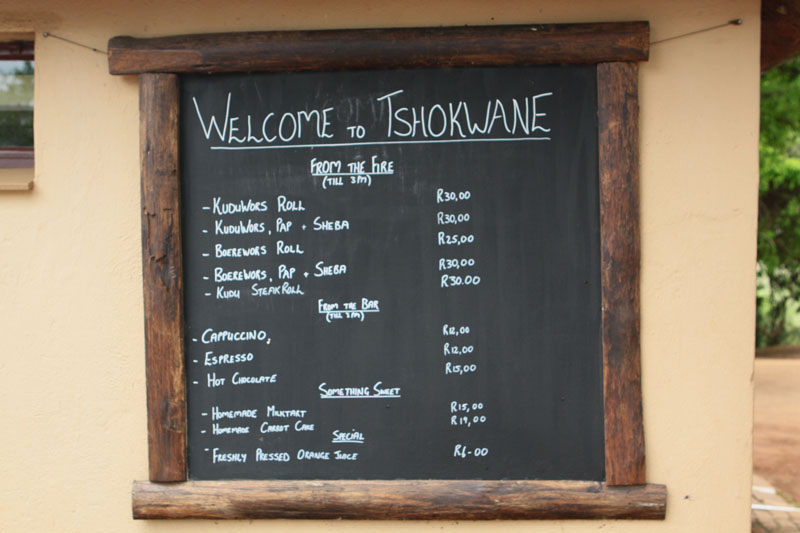 WELCOME TO TSHOKWANE
FROM THE FIRE
(TILL 3PM)
- KUDUWORS ROLL R30,00
- KUDUWORS, PAP + SHEBA R30,00
- BOEREWORS ROLL R25,00
- BOEREWORS, PAP + SHEBA R30,00
- KUDU STEAK ROLL R30.00
FROM THE BAR
(TILL 3PM)
- CAPPUCCINO, R12,00
- ESPRESSO R12,00
- HOT CHOCOLATE R15,00
SOMETHING SWEET
- HOMEMADE MILKTART R15,00
- HOMEMADE CARROT CAKE R19,00
SPECIAL
- FRESHLY PRESSED ORANGE JUICE R6-00